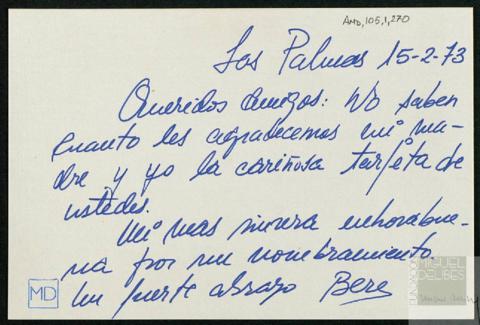 AMD,105,1,270
Las Palmas 15-2-73
Queridos amigos: No saben
cuanto les agradecemos mi ma-
dre y yo la cariñosa tarjeta de
ustedes.
Mi mas sincera enhorabue-
na por su nombramiento.
Un fuerte abrazo Bere
MD
FUNDACIÓN
MIGUEL
DELIBES